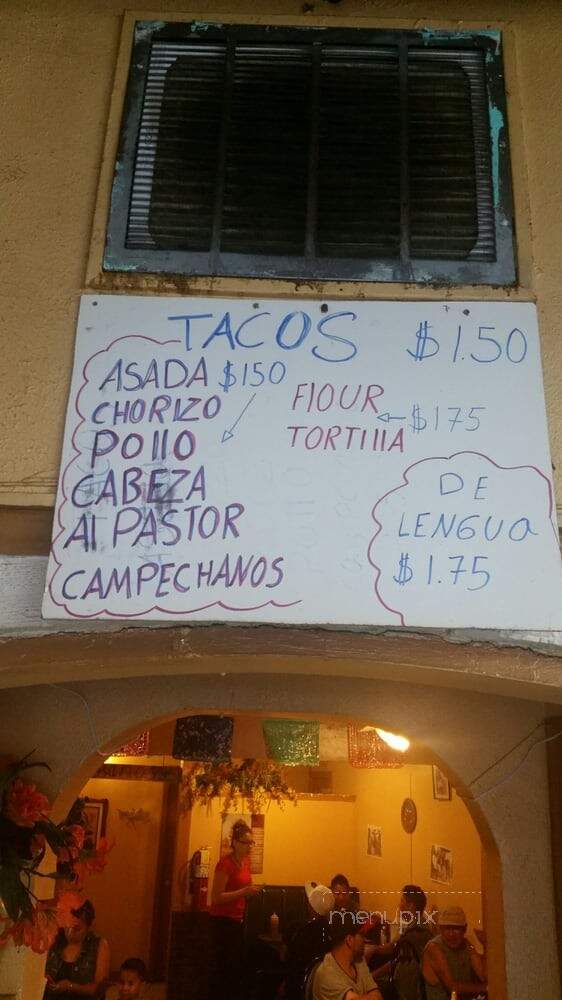 TACOS $1.50
ASADA $150
CHORIZO
POllO
CABEZA
Al PASTOR
CAMPECHANOS
FlOUR
TORTIllA
$175
DE
LENGUA
$1.75
menupix